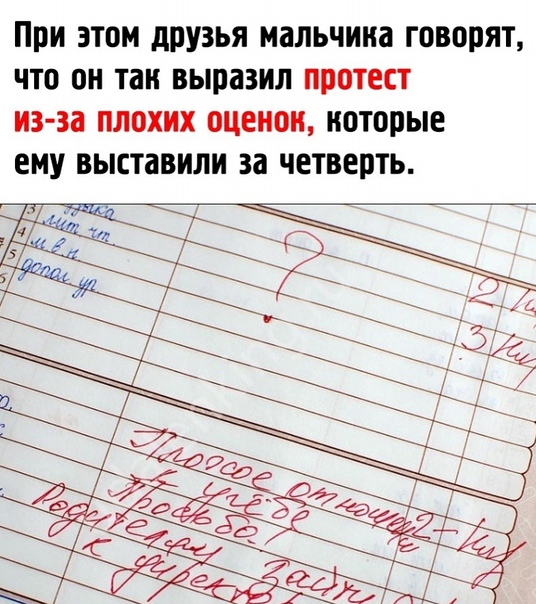 При этом друзья мальчика говорят,
что он так выразил протест
из-за плохих оценок, которые
ему выставили за четверть.
3
4 лит чт.
5 м.в.н
6 допол ур.
?
2
3
Плохое отношение
к учёбе 2-
Просьба!
Родителям зайти
к директо